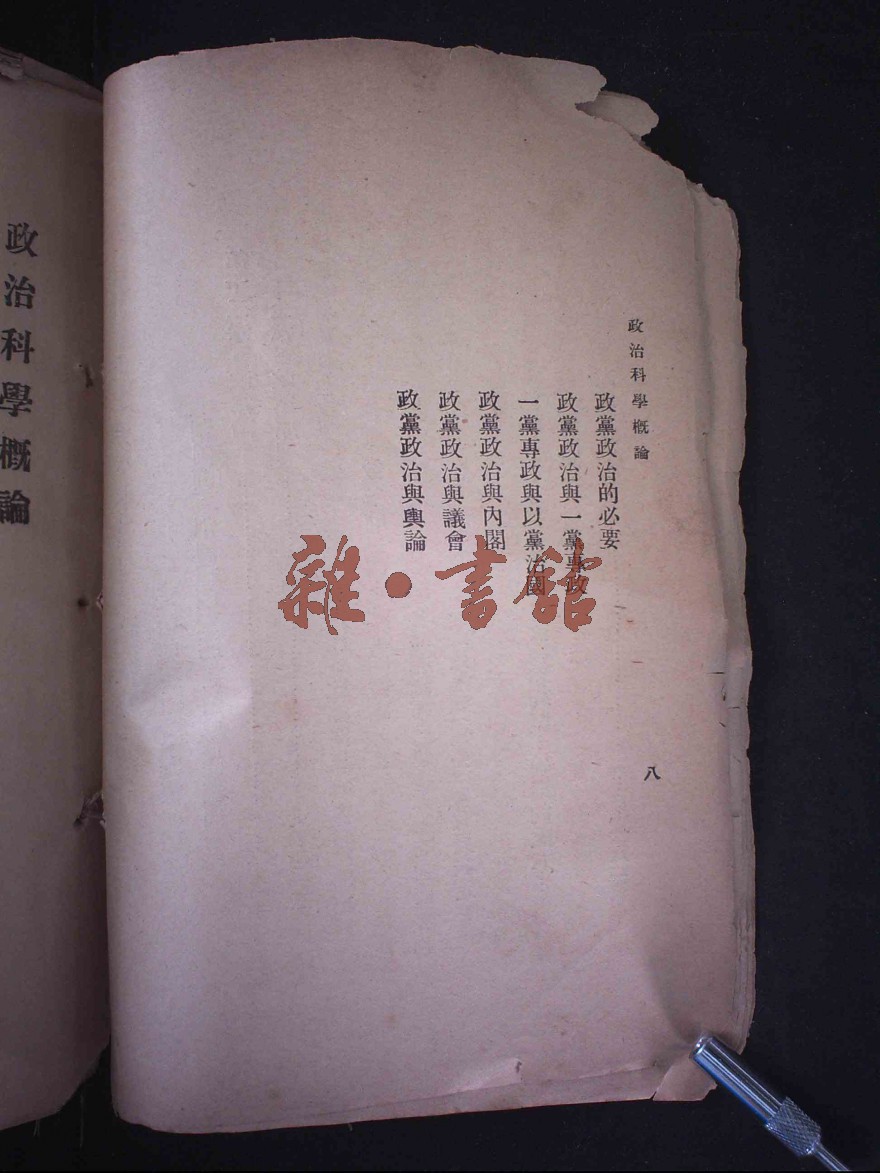 政治科學概論
政黨政治的必要
政黨政治與一黨專政
一黨專政與以黨治國
政黨政治與內閣
政黨政治與議會
政黨政治與輿論
八
政治科學概論
雜·書館